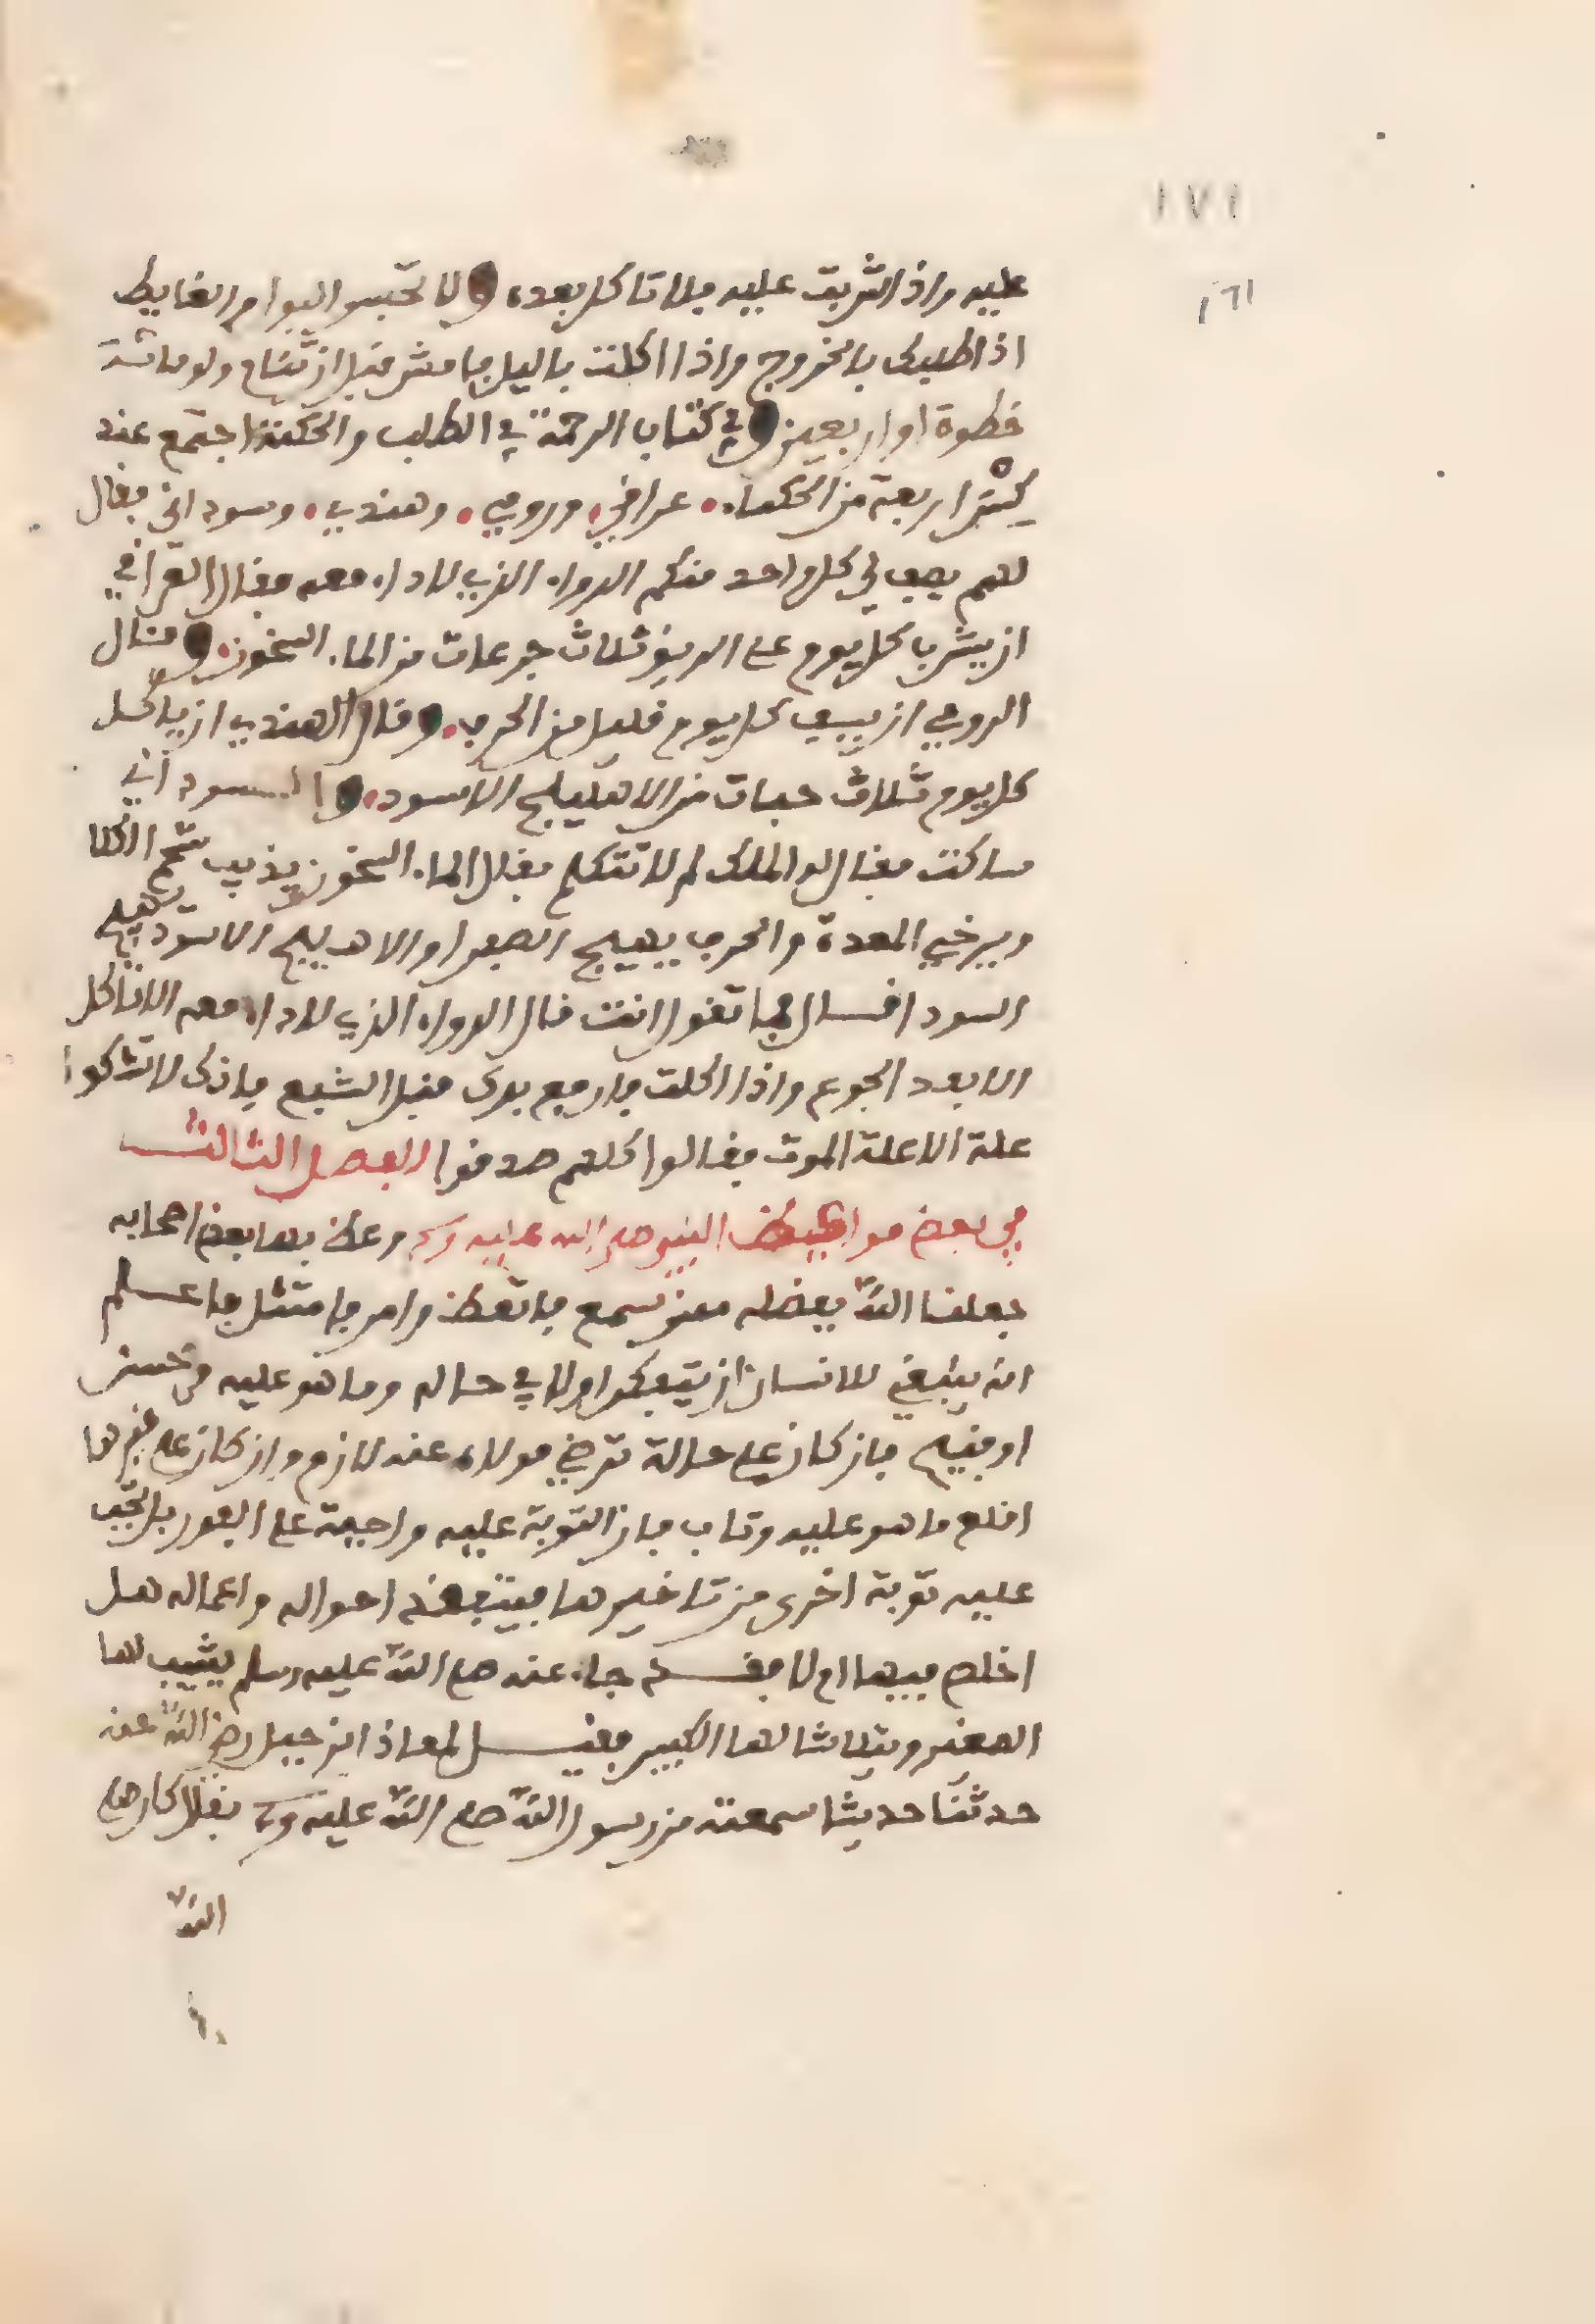 ١٧١
١٦١
عليه واذا شربت عليه فلا تاكل بعده ولا تحبس البول والغايط
اذا طلبك بالخروج واذا اكلت باليل فامش قبل ان تنام ولو مائة
خطوة او اربعين وفي كتاب الرحمة في الطب والحكمة اجتمع عند
كسرى اربعة من الحكماء عراقي ورومي وهندي وسوداني فقال
لهم يصف لي كل واحد منكم الدواء الذي لا داء معه فقال العراقي
ان يشرب كل يوم على الريق ثلاث جرعات من الماء السخون وقال
الرومي ان يسف كل يوم قليل من الحرف وقال الهندي ان ياكل
كل يوم ثلاث حبات من الاهليلج الاسود والسوداني
ساكت فقال له الملك لم لا تتكلم فقال الماء السخون يذيب شحم الكلا
ويرخي المعدة والحرف يهيج الصفرا والاهليلج الاسود يهيج
السودا فسال فما تقول انت قال الدواء الذي لا داء معه لا تاكل
الا بعد الجوع واذا اكلت فارفع يدك قبل الشبع فانك لا تشكوا
علة الا علة الموت فقالوا كلهم صدقوا الفصل الثالث
في بعض مواعظ النبي صلى الله عليه وسلم وعظ بها بعض اصحابه
جعلنا الله بفضله ممن سمع فاتعظ وامر فامتثل فاعلم
انه ينبغي للانسان ان يتفكر اولا في حاله وما هو عليه من حسن
او قبيح فان كان على حالة ترضي مولاه عنه لازم وان كان على غيرها
اقلع ما هو عليه وتاب فان التوبة عليه واجبة على الفور بل تجب
عليه توبة اخرى من تاخيرها فيتفقد احواله واعماله هل
اخلص فيها ام لا فقد جاء عنه صلى الله عليه وسلم يشيب لها
الصغير ويتلاشا لها الكبير فقيل لمعاذ ابن جبل رضي الله عنه
حدثنا حديثا سمعته من رسول الله صلى الله عليه وسلم فقال كان صلى
الله